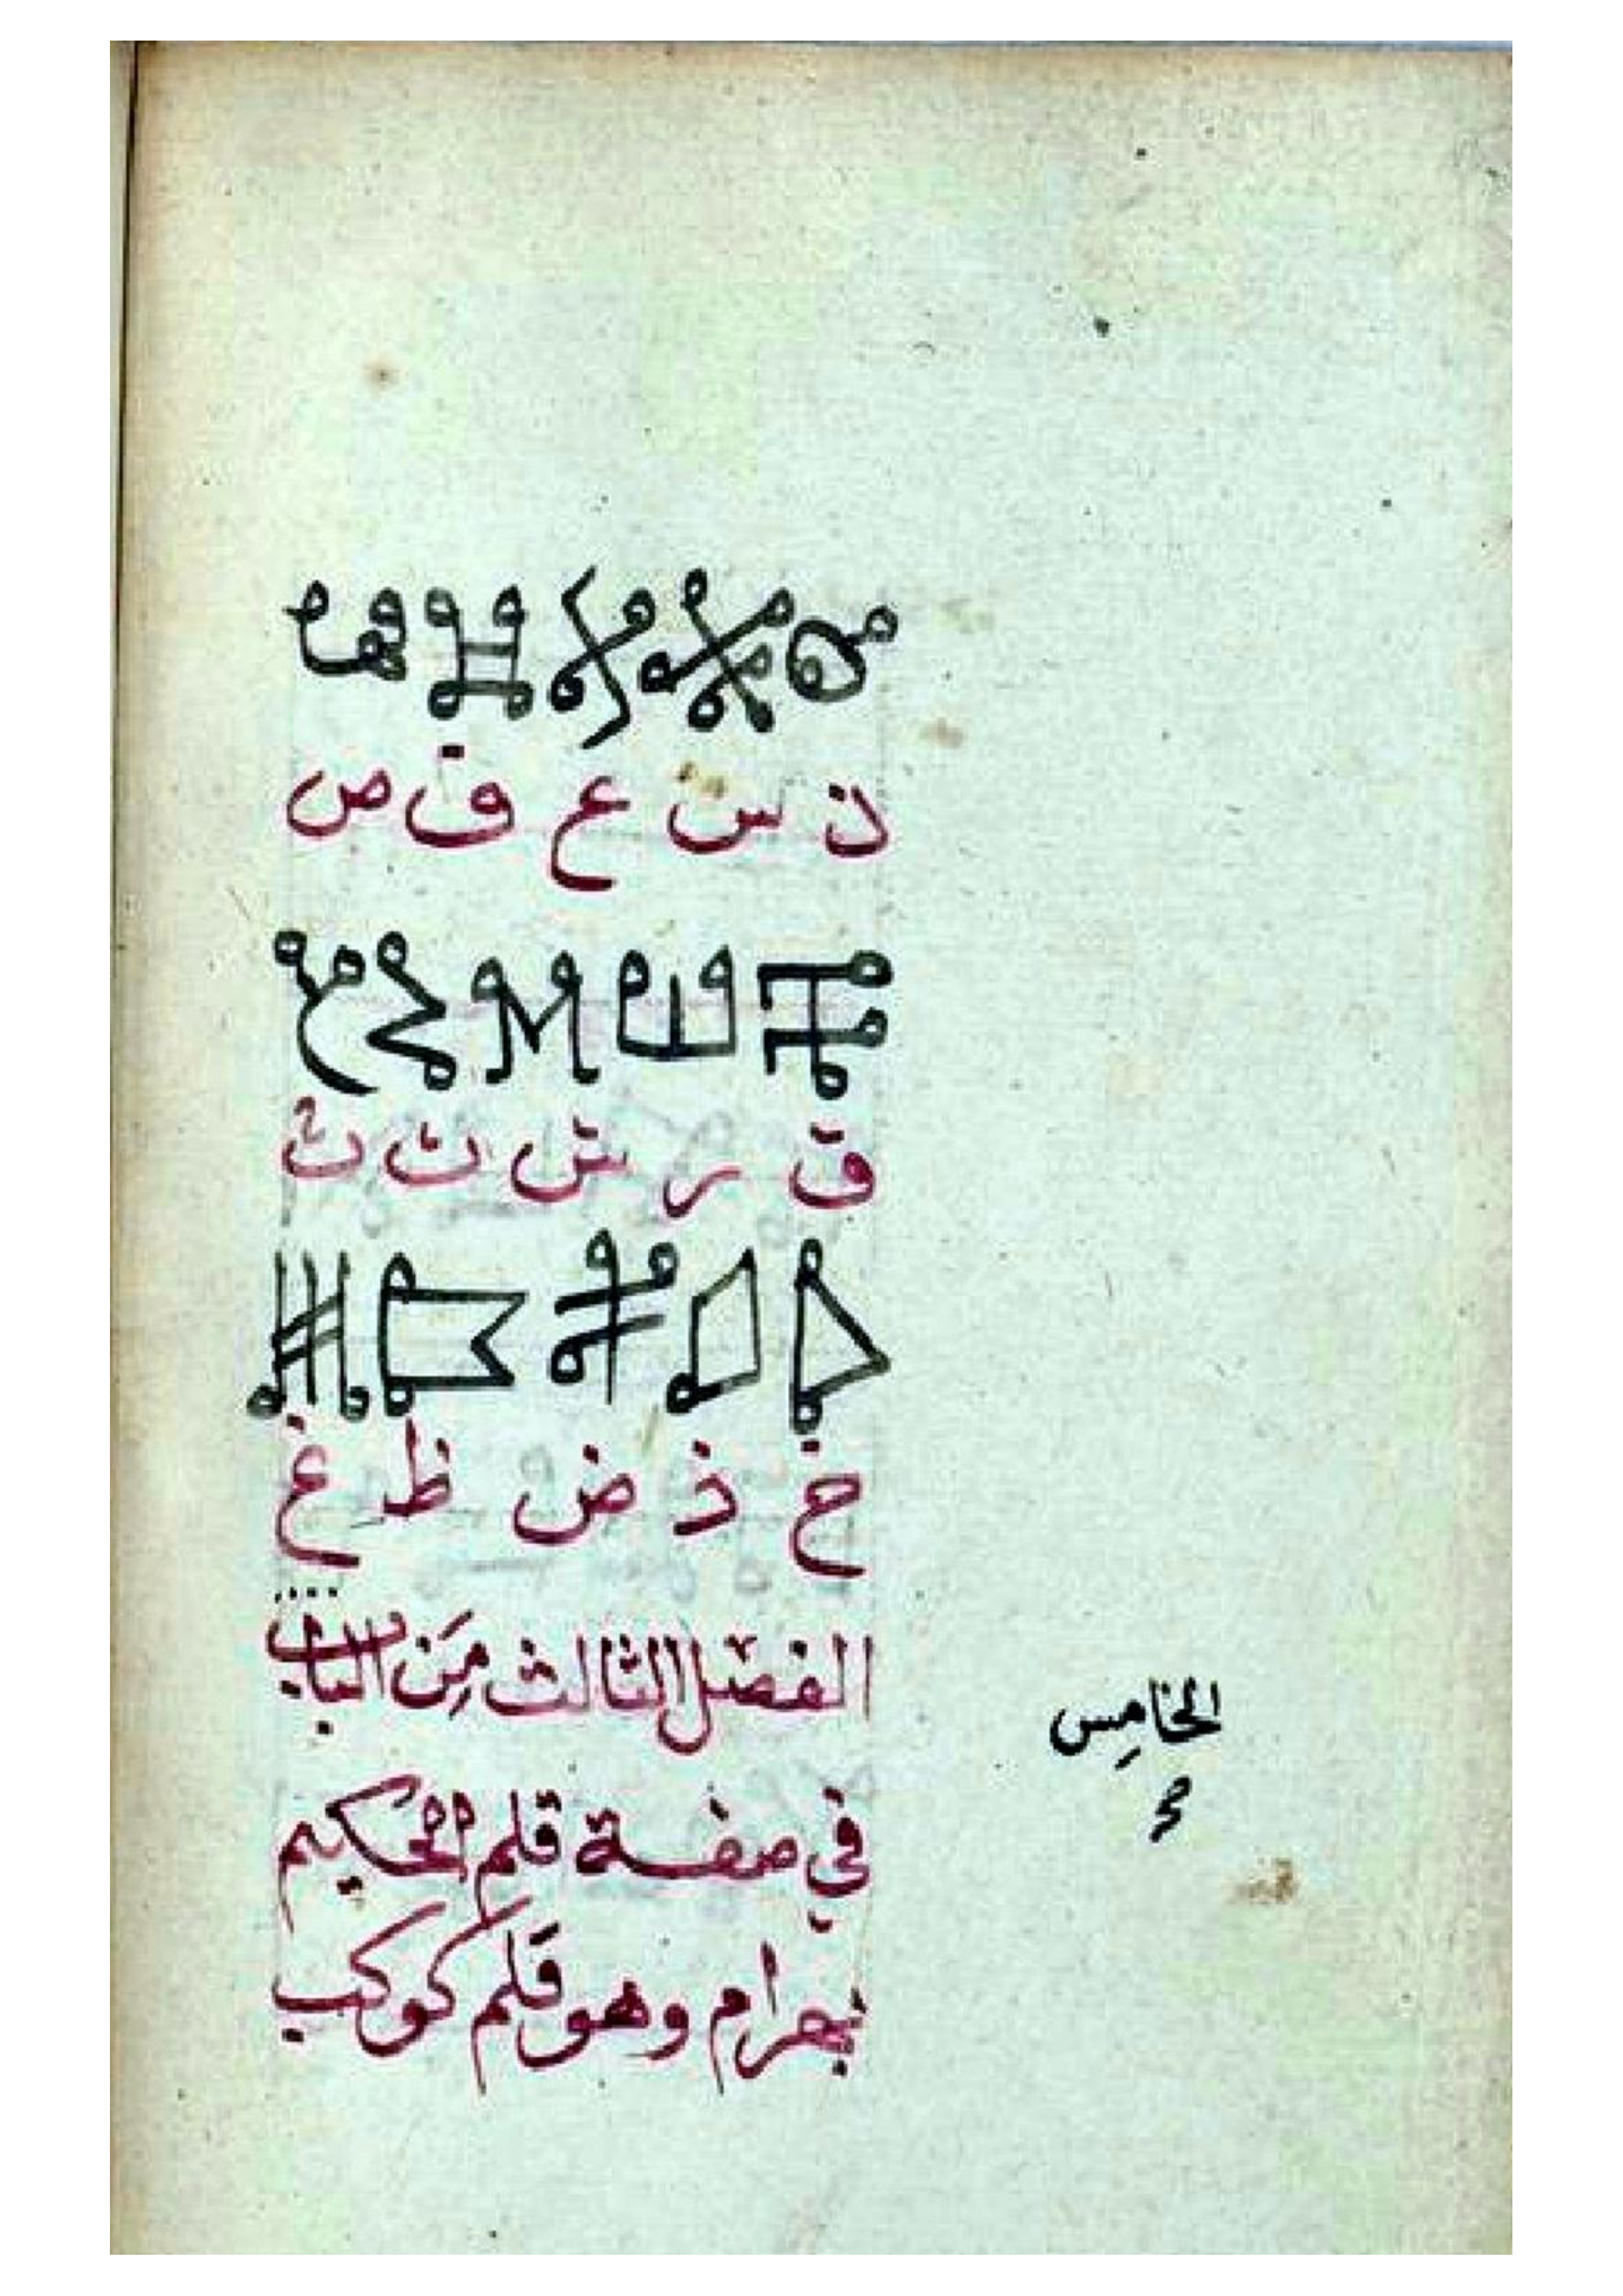 ن س ع ف ص
ق ر ش ت ث
خ ذ ض ظ غ
الفصل الثالث من الباب
الخامس
في صفة قلم الحكيم
بهرام وهو قلم كوكب